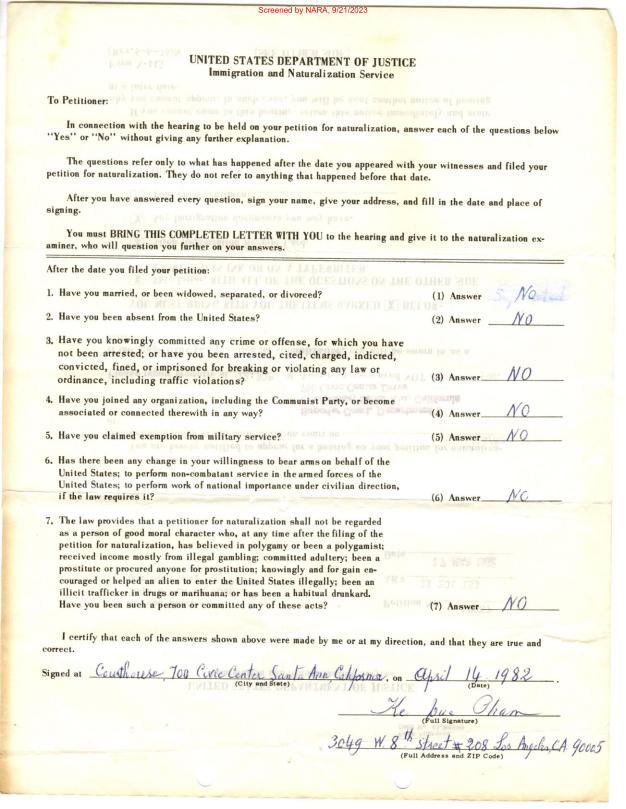 Screened by NARA, 9/21/2023
UNITED STATES DEPARTMENT OF JUSTICE
Immigration and Naturalization Service
To Petitioner:
In connection with the hearing to be held on your petition for naturalization, answer each of the questions below
"Yes" or "No" without giving any further explanation.
The questions refer only to what has happened after the date you appeared with your witnesses and filed your
petition for naturalization. They do not refer to anything that happened before that date.
After you have answered every question, sign your name, give your address, and fill in the date and place of
signing.
You must BRING THIS COMPLETED LETTER WITH YOU to the hearing and give it to the naturalization ex-
aminer, who will question you further on your answers.
After the date you filed your petition:
1. Have you married, or been widowed, separated, or divorced? (1) Answer NO
2. Have you been absent from the United States? (2) Answer NO
3. Have you knowingly committed any crime or offense, for which you have
not been arrested; or have you been arrested, cited, charged, indicted,
convicted, fined, or imprisoned for breaking or violating any law or
ordinance, including traffic violations? (3) Answer NO
4. Have you joined any organization, including the Communist Party, or become
associated or connected therewith in any way? (4) Answer NO
5. Have you claimed exemption from military service? (5) Answer NO
6. Has there been any change in your willingness to bear arms on behalf of the
United States; to perform non-combatant service in the armed forces of the
United States; to perform work of national importance under civilian direction,
if the law requires it? (6) Answer NO
7. The law provides that a petitioner for naturalization shall not be regarded
as a person of good moral character who, at any time after the filing of the
petition for naturalization, has believed in polygamy or been a polygamist;
received income mostly from illegal gambling; committed adultery; been a
prostitute or procured anyone for prostitution; knowingly and for gain en-
couraged or helped an alien to enter the United States illegally; been an
illicit trafficker in drugs or marihuana; or has been a habitual drunkard.
Have you been such a person or committed any of these acts? (7) Answer NO
I certify that each of the answers shown above were made by me or at my direction, and that they are true and
correct.
Signed at Courthouse, 700 Civic Center Santa Ann California, on April 14 1982.
(City and State) (Date)
Ke Pham
(Full Signature)
3049 W. 8th Street # 208 Los Angeles, CA 90005
(Full Address and ZIP Code)